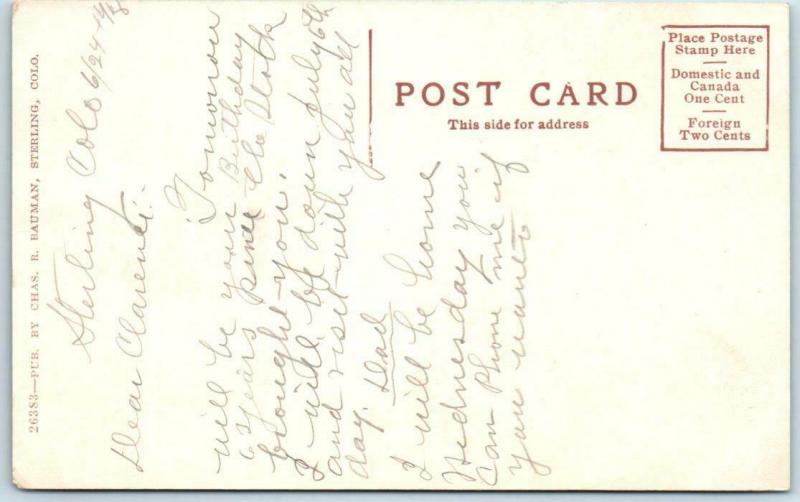 POST CARD
This side for address
Place Postage
Stamp Here
Domestic and
Canada
One Cent
Foreign
Two Cents
26383—PUB. BY CHAS. R. BAUMAN, STERLING, COLO.
Sterling Colo 6/24
Dear Clarence:-
Tomorrow
will be your Birthday
6 years since the Stork
brought you.
I will be down July 6th
and visit with you all
day. Dad
I will be home
Wednesday you
can Phone me if
you want to